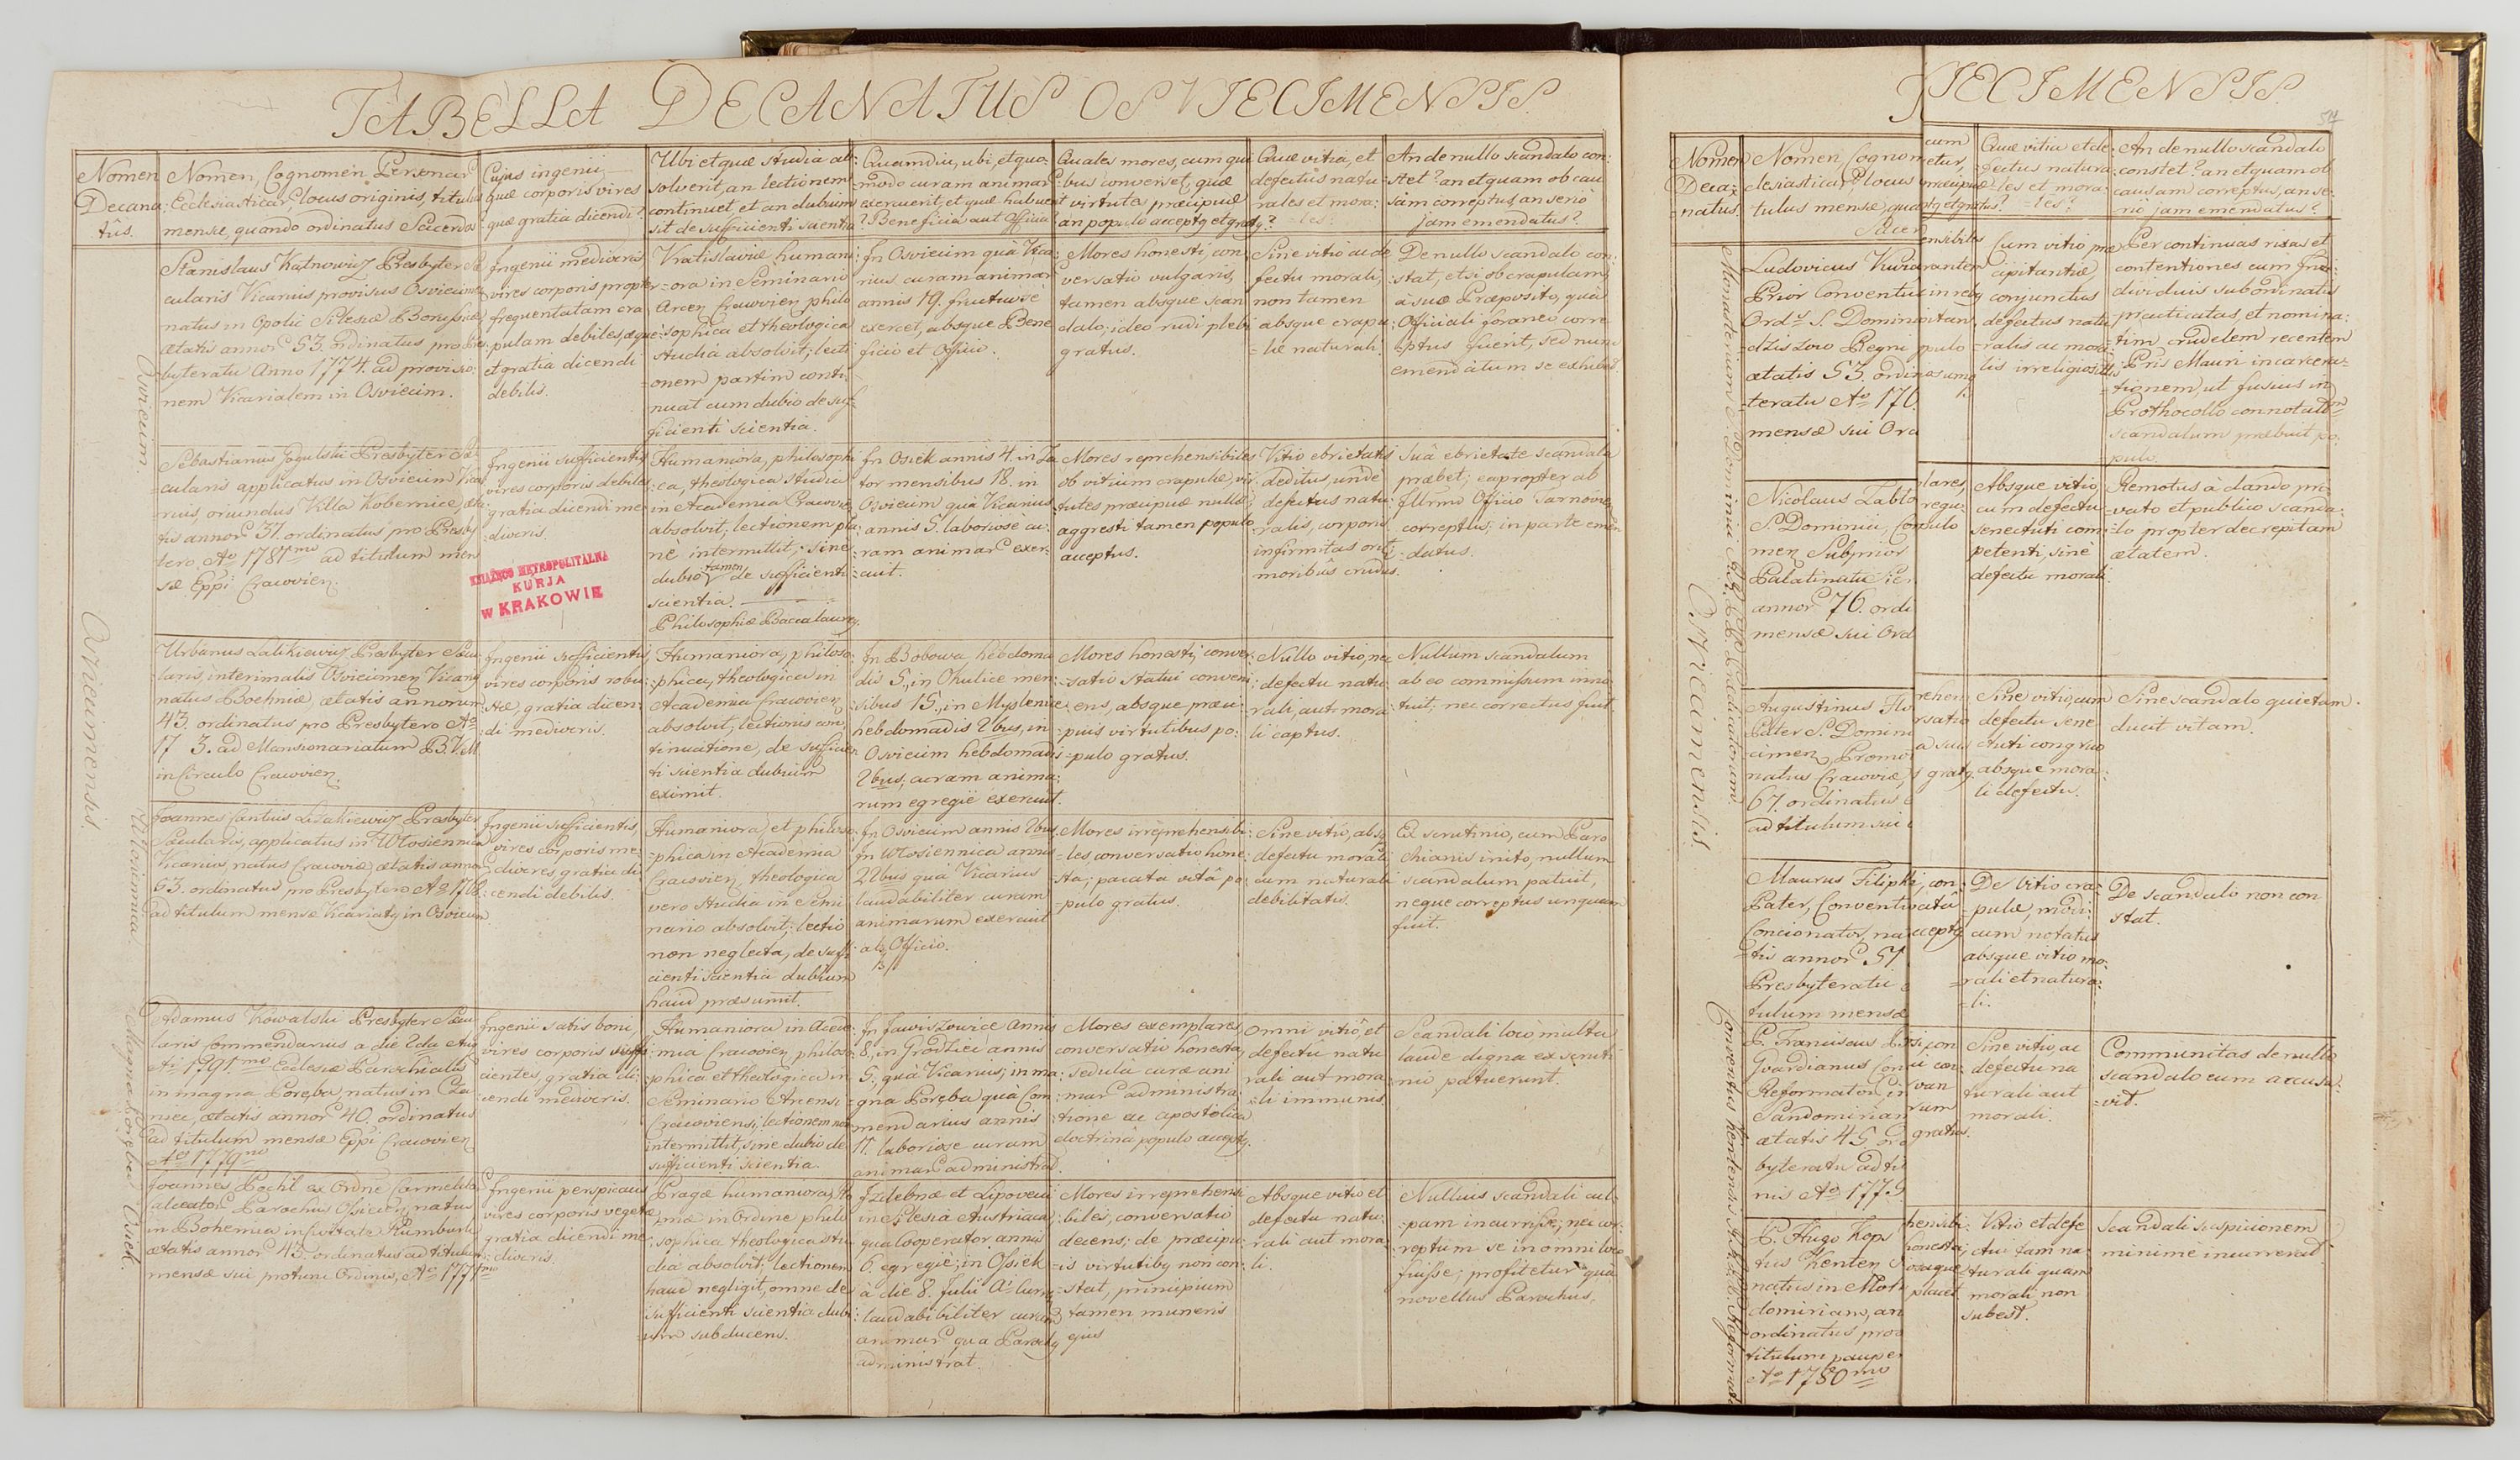 TABELLA DECANATUS OSVIECIMENSIS.
Nomen
Decana
tûs.
Nomen, Cognomen Personar
Ecclesiasticar, locus originis, titulus
mensæ, quando ordinatus Sacerdos
Cujus ingenii,
quæ corporis vires
quæ gratia dicendi?
Ubi et quæ studia ab:
solverit, an lectionem
continuet et an dubium
sit de sufficienti scientia
Quamdiu, ubi, et quo:
modo curam animar
exercuerit, et quæ habuerit
? Beneficia aut Officia
Quales mores, cum qui
bus converset, quæ
virtutes præcipuæ
an populo accepty et graty?
Quæ vitia, et
defectus natu:
rales et mora:
les?
An de nullo scandalo con:
stet? an et quam ob cau
sam correptus, an serio
jam emendatus?
Osviecimensis.
Osviecim.
Stanislaus Kątnowicz Presbyter Sæ
cularis Vicarius provisus Osviecimen
natus in Opolie Silesiæ Borussicæ
ætatis annor 53. ordinatus pro Pres
byteratu Anno 1774. ad provisio
nem Vicarialem in Osviecim.
Ingenii mediocris
vires corporis propter
frequentatam cra
pulam debiles, æque
et gratia dicendi
debilis.
Vratislaviæ humani
ora in Seminario
Arcen Cracovien philo
sophica et theologica
studia absolvit; lecti
onem partim conti
nuat cum dubio de suf
ficienti scientia.
In Osviecim quà Vica
rius curam animar
annis 19. fructuose
exercet, absque Bene
ficio et Officio.
Mores honesti, con
versatio vulgaris,
tamen absque scan
dalo; ideo rudi plebi
gratus.
Sine vitio ac de
fectu morali,
non tamen
absque crapu
læ naturali.
De nullo scandalo con:
stat, etsi ob crapulam,
à suo Præposito, quà
Officiali foraneo corre
ptus fuerit, sed nunc
emendatum se exhibet.
Sebastianus Jogulski Presbyter Sæ
cularis applicatus in Osviecim Vica
rius, oriundus Villa Kobernice, æta
tis annor 37. ordinatus pro Presby
tero Ao 1781mo ad titulum men
sæ Eppi Cracovien.
Ingenii sufficientis
vires corporis debiles
gratia dicendi me
diocris.
KSIĄŻĘCO METROPOLITALNA
KURJA
W KRAKOWIE
Humaniora, philosophi
ca, theologica studia
in Academia Cracovien
absolvit; lectionem pla
ne intermittit; sine
dubio tamen de sufficienti
scientia.
Philosophiæ Baccalaurey.
In Osiek annis 4. in Za
tor mensibus 18. in
Osviecim quà Vicarius
annis 5. laboriose cu:
ram animar exer
cuit.
Mores reprehensibiles
ob vitium crapulæ, vir
tutes præcipuæ nullæ,
aggresti tamen populo
acceptus.
Vitio ebrietatis
deditus, unde
defectus natu
ralis, corporis
infirmitas orti
moribus crudus.
Suâ ebrietate scandala
præbet; eapropter ab
Illrmo Officio Tarnovien
correptus; in parte emen
datus.
Urbanus Lalikiewicz Presbyter Sæcu
laris, interimalis Osviecimen Vicary
natus Bochniæ, ætatis annorum
43. ordinatus pro Presbytero Ao
17 3. ad Mansionariatum B.V.M.
in Circulo Cracovien.
Ingenii sufficientis,
vires corporis robu
stæ, gratia dicen
di mediocris.
Humaniora, philoso
phica, theologica in
Academia Cracovien
absolvit; lectionis con
tinuatione, de sufficien
ti scientia dubium
eximit.
In Bobowa hebdoma
dis 5, in Okulice men
sibus 15, in Myslenice
hebdomadis 2bus, in
Osviecim hebdomadis
2bus, curam anima
rum egregie exercuit.
Mores honesti, conver
satio statui conveni
ens, absque præci
puis virtutibus po:
pulo gratus.
Nullo vitio, nec
defectu natu
rali, aut mora
li captus.
Nullum scandalum
ab eo commissum inno
tuit; nec correctus fuit
Włosiennica
Joannes Cantius Lizakiewicz Presbyter
Sæcularis, applicatus in Włosiennica
Vicarius, natus Cracoviæ, ætatis annor
63. ordinatus pro Presbytero Ao 1768.
ad titulum mensæ Vicariaty in Osviecim
Ingenii sufficientis,
vires corporis me
diocres, gratia di
cendi debilis.
Humaniora, et philoso
phica in Academia
Cracovien, theologica
vero studia in Semi
nario absolvit; lectio
non neglecta, de suffi
cienti scientia dubium
haud præsumit.
In Osviecim annis 2bus
In Włosiennica annis
22bus quà Vicarius
laudabiliter curam
animarum exercuit
absq Officio.
Mores irreprehensibi
les, conversatio hone
sta; pacata vitâ po
pulo gratus.
Sine vitio, absq
defectu morali
cum naturali
debilitatis.
Ex scrutinio, cum Paro
chianis inito, nullum
scandalum patuit,
neque correptus unquam
fuit.
Magna Poręba
Adamus Kowalski Presbyter Sæcu
laris Commendarius a die 2da Aug
Ai 1791mo Ecclesiæ Parochialis
in magna Poręba, natus in Cza
niec, ætatis annor 40. ordinatus
ad titulum mensæ Eppi Cracovien
Ao 1779no
Ingenii satis boni,
vires corporis suffi
cientes, gratia di
cendi mediocris.
Humaniora in Acade
mia Cracovien, philoso
phica et theologica in
Seminario Arcensi
Cracoviensi, lectionem non
intermittit, sine dubio de
sufficienti scientia.
In Jawiszowice annis
8, in Grodziec annis
5, quà Vicarius; in ma
gna Poręba quà Com
mendarius annis
11. laboriose curam
animar administrat.
Mores exemplares
conversatio honesta,
sedula curæ ani
mar administra
tione ac apostolica
doctrina populo accepty.
Omni vitio, et
defectu natu
rali aut mora
li immunis.
Scandali loco multa
laude digna ex scruti
nio patuerunt.
Osiek.
Joannes Pochl ex Ordine Carmelita
Calceator Parochus Osiecien, natus
in Bohemia in Civitate Rumburk
ætatis annor 43. ordinatus ad titulum
mensæ sui protunc Ordinis, Ao 1771mo
Ingenii perspicacis
vires corporis vegetæ
gratia dicendi me
diocris.
Pragæ humaniora, Ro
mæ in Ordine philo
sophica theologica stu
dia absolvit; lectionem
haud negligit, omne de
sufficienti scientia dubi
um subducens.
Izdebnæ et Lipovecii
in Silesia Austriaca
qua Cooperator annis
6. egregie; in Osiek
à die 8. Julii Ai Curry
laudabibiliter curam
animar qua Parochy
administrat.
Mores irreprehensi
biles, conversatio
decens; de præcipu
is virtutibq non con:
stat, principium
tamen muneris
ejus
Absque vitio et
defectu natu:
rali aut mora
li.
Nullius scandali cul
pam incurrisse; nec cor
reptum se in omni loco
fuisse; profitetur quà
novellus Parochus.
SIECIMENSIS.
Nomen
Deca:
natus.
Nomen, Cognom
clesiasticar, locus
tulus mensæ, quan
Sacer
cum
etur,
præcipuæ
ty et gratus?
Quæ vitia et de
fectus natura
les et mora
les?
An de nullo scandalo
constet? an et quam ob
causam correptus, an se
rio jam emendatus?
Osviecimensis.
Ludovicus Kwia
Prior Conventus
Ordis S. Domini
dziszow Regni
ætatis 53. ordin
teratu Ao 176.
mensæ sui Ord
Cum vitio præ
cipitantiæ
conjunctus
defectus natu
ralis ac mora
lis irreligiositatis
Per continuas rixas et
contentiones cum Indi
dividuis subordinatis
practicatas, et nomina
tim crudelem recentem
Pris Mauri incarcera
tionem, ut fusius in
Prothocollo connotatum
scandalum præbuit po
pulo.
Nicolaus Zablo
S. Dominici, Con
men Subprior
Palatinatu Sien
annor 76. ordi
mensæ sui Ord
lares,
regu
pulo
Absque vitio,
cum defectu
senectuti com
petenti, sine
defectu morali
Remotus à dando pri
vato et publico scanda
lo propter decrepitam
ætatem.
Augustinus Flo
Pater S. Domini
cimen, Promo
natus Cracoviæ
67. ordinatus
ad titulum sui
rehen
rsatio
a suis
graty.
Sine vitio, cum
defectu sene
ctuti congruo
absque mora
li defectu.
Sine scandalo quietam
ducit vitam.
Maurus Filipki
Pater, Conventu
Concionator, na
tis annor 51
Presbyteratu
tulum mensæ
De vitio cra
pulæ, modi
cum notatus
absque vitio mo
rali et natura
li.
De scandalo non con
stat.
Conventus Kentensis
P. Franciscus
Gvardianus Con
Reformator, in
Sandomirian
ætatis 45. ord
byteratu ad ti
nis Ao 1773.
gratus.
Sine vitio, ac
defectu na
turali aut
morali.
Communitas de nullo
scandalo eum accusa
vit.
P. Hugo Kops
tus Kenten S
natus in Mo
domirian, an
ordinatus pro
titulum pauper
Ao 1780mo
hensibi
honesta,
placet
Vitio et defe
ctui tam na
turali quam
morali non
subest.
Scandali suspicionem
minime incurrerat